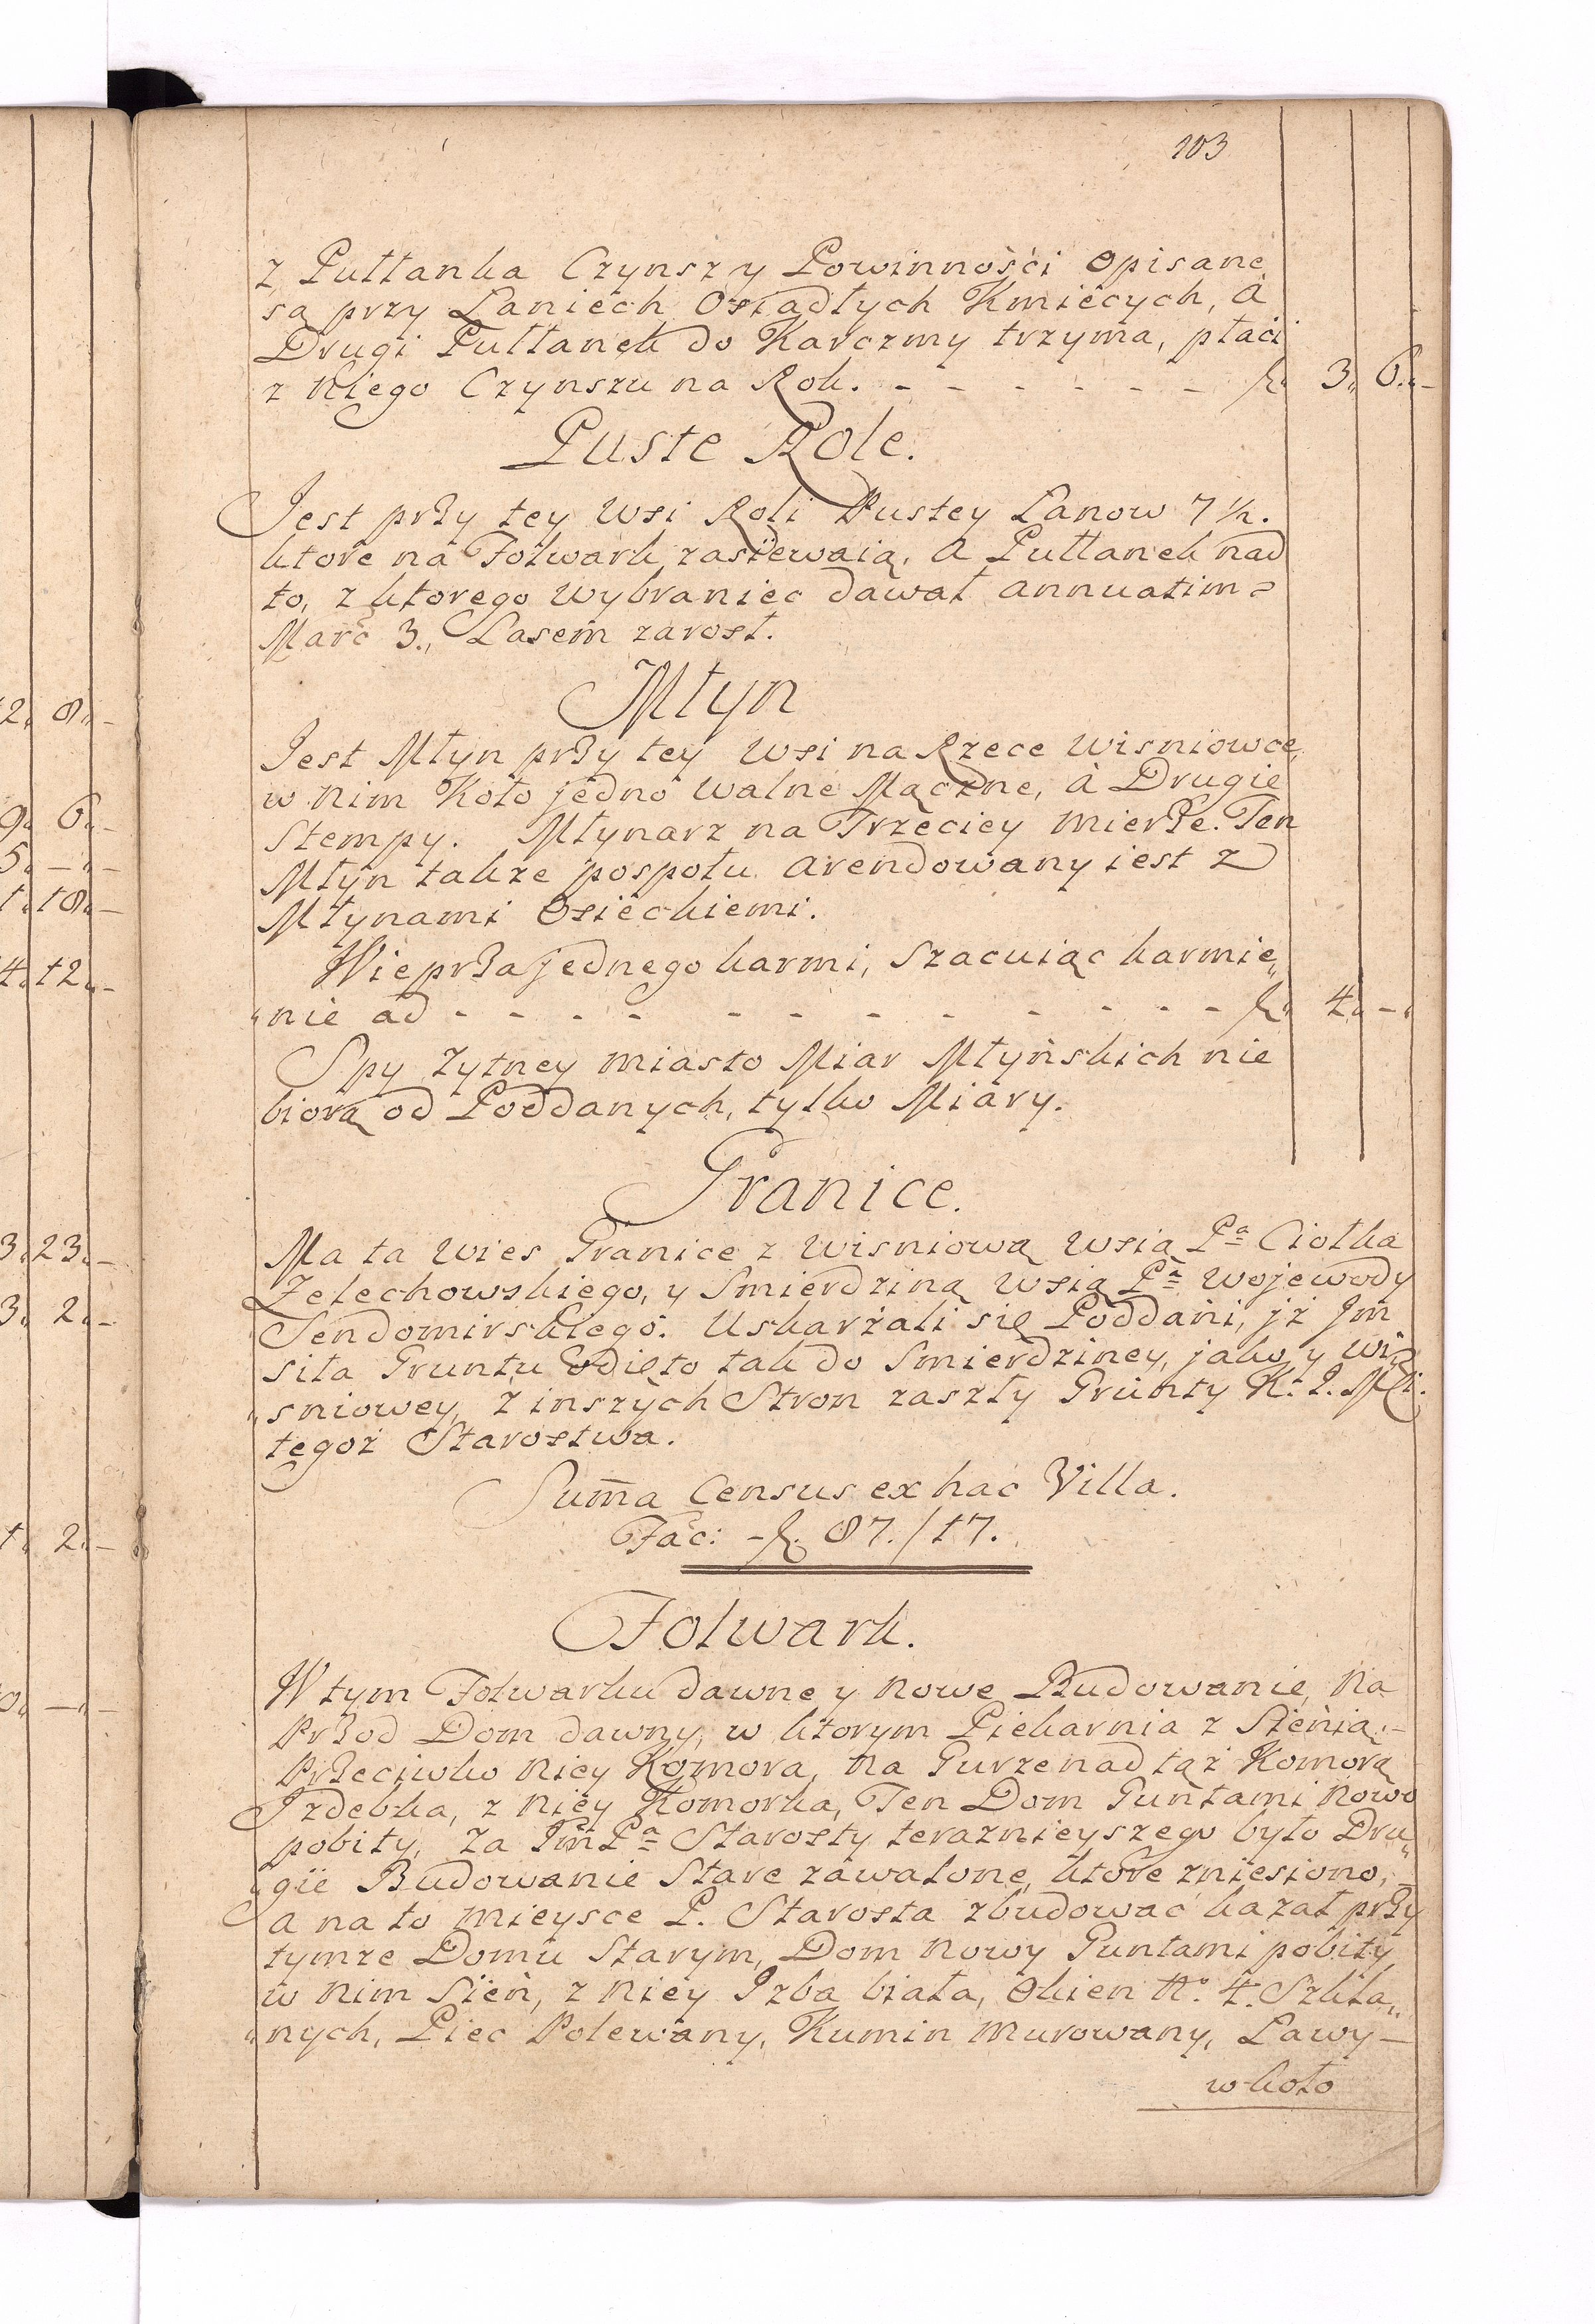 103
z Pułłanka Czynsz y Powinnośći opisane
są przy Łaniéch Osiadłych Kmiécych, à
Drugi Pułłanek do Karczmy trzyma, płaći
z Niego Czynszu na Rok. - - - - - - f. 3„ 6„-
Puste Role.
Jest przy tey Wsi Roli Pustey Łanow 7 1/2.
ktore ná Folwark zasiéwaią. A Pułłanek nad
to, z ktorego Wybraniec dawał annuatim=
Marc 3., Lasem zarosł.
Młyn
Jest Młyn przy tey Wsi na Rzece Wisniowce,
w nim Koło jedno walne Mączne, à Drugie
Stempy. Młynarz na Trzeciey mierze. Ten
Młyn takze pospołu arendowany iest z
Młynami Osiéckiemi.
Wieprza jednego karmi, szacuiąc karmie„
„nie ad - - - - - - - - - - - - f. 4„ -„
Spy Zytney miasto Miar Młyńskich nie
biorą od Poddanych, tylko Miary.
Granice.
Ma ta Wies Granice z Wisniową Wsią Pa Ciołka
Zelechowskiego, y Smierdziną Wsią Pa Wojewody
Sendomirskiego. Uskarżali się Poddani, jż Jm
siła Gruntu Odięto tak do Smierdziney, jako y Wi„
„sniowey, z inszych Stron zaszły Grunty K. J. Mći.
tegoż Starostwa.
Sum̄a Census ex hac Villa.
Fac: -f. 87./17.
Folwark.
W tym Folwarku dawne y nowe Budowanie, Na
Przod Dom dawny, w ktorym Piekarnia z Sienią.-
Przeciwko niey Komora, na Gurze nad tąż Komorą
Jzdebka, z niéy Komorka, Ten Dom Guntami nowo
pobity, za Jm Pa Starosty teraznieyszego było Dru„
„gie Budowanie Stare zawalone, ktore zniesiono, -
a na to mieysce P. Starosta zbudować kazał przy
tymze Domu Starym, Dom nowy Guntami pobity
w nim Sień, z niey Jzba biała, Okien No. 4. Szkla„
„nych, Piec Polewany, Kumin murowany, Ławy-
w koło
2„ 8„-
9„ 6„-
5„ -„-
1„ 18„-
4„ 12„-
3„ 23„-
3„ 2„-
1„ 2„-
0„ -„-